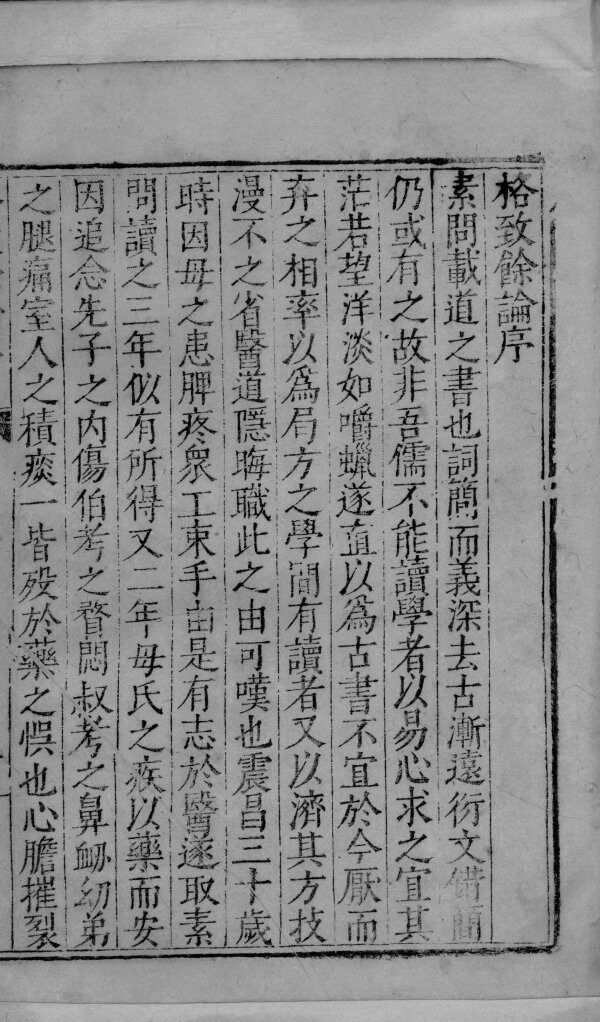 格致餘論序
素問載道之書也詞簡而義深去古漸遠衍文錯簡
仍或有之故非吾儒不能讀學者以易心求之宜其
茫若望洋淡如嚼蠟遂直以爲古書不宜於今厭而
弃之相率以爲局方之學間有讀者又以濟其方技
漫不之省醫道隱晦職此之由可嘆也震昌三十歲
時因母之患脾疼衆工束手由是有志於醫遂取素
問讀之三年似有所得又二年母氏之疾以藥而安
因追念先子之内傷伯考之瞀悶叔考之鼻衄幼弟
之腿痛室人之積痰一皆殁於藥之悞也心膽摧裂